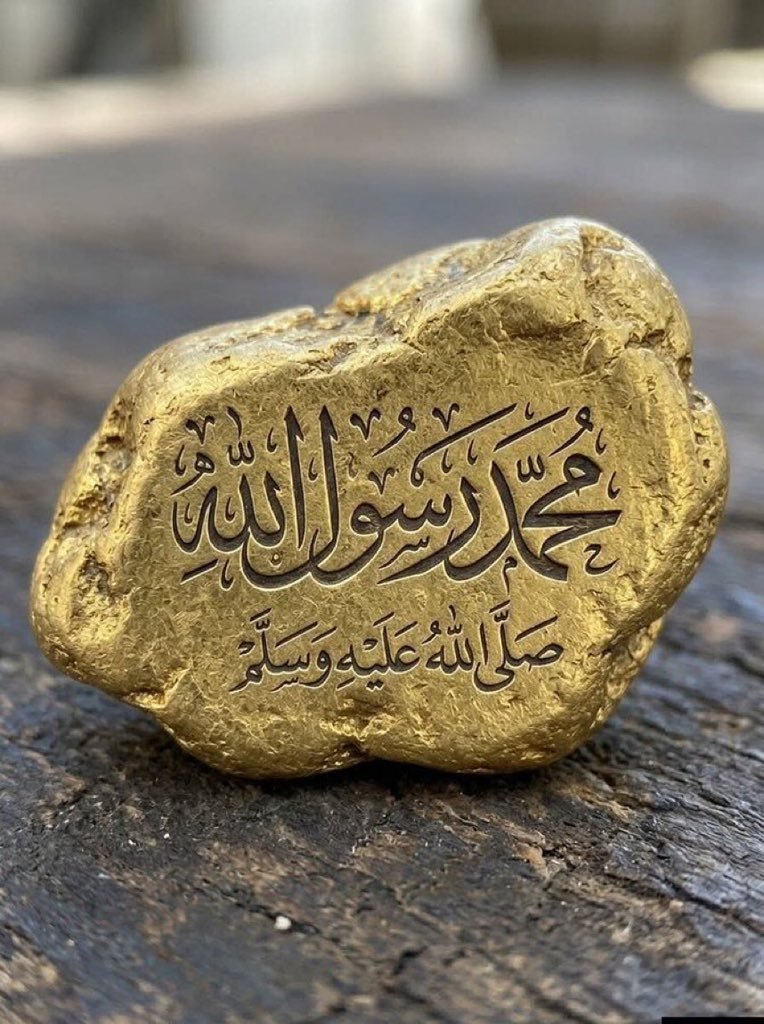 مُحَمَّدٌ رَسُولُ اللهِ
صَلَّى اللهُ عَلَيْهِ وَسَلَّمْ